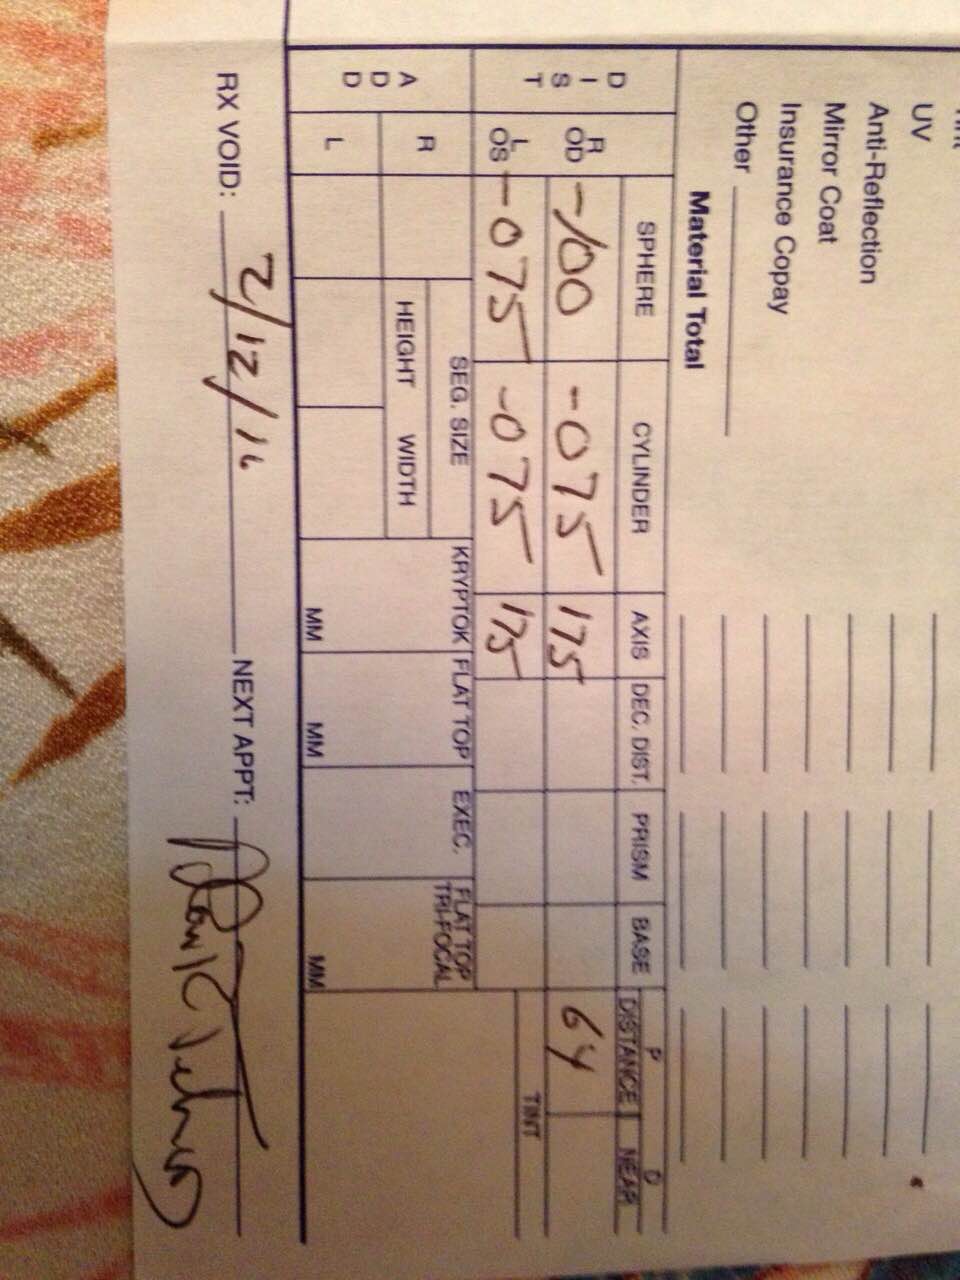 UV
Anti-Reflection
Mirror Coat
Insurance Copay
Other
Material Total
SPHERE CYLINDER AXIS DEC. DIST. PRISM BASE P D
DISTANCE NEAR
DIST R OD -100 -075 175 64
L OS -075 -075 175 TINT
ADD R SEG. SIZE KRYPTOK FLAT TOP EXEC. FLAT TOP TRI-FOCAL
HEIGHT WIDTH
L MM MM MM
RX VOID: 2/12/16 NEXT APPT: